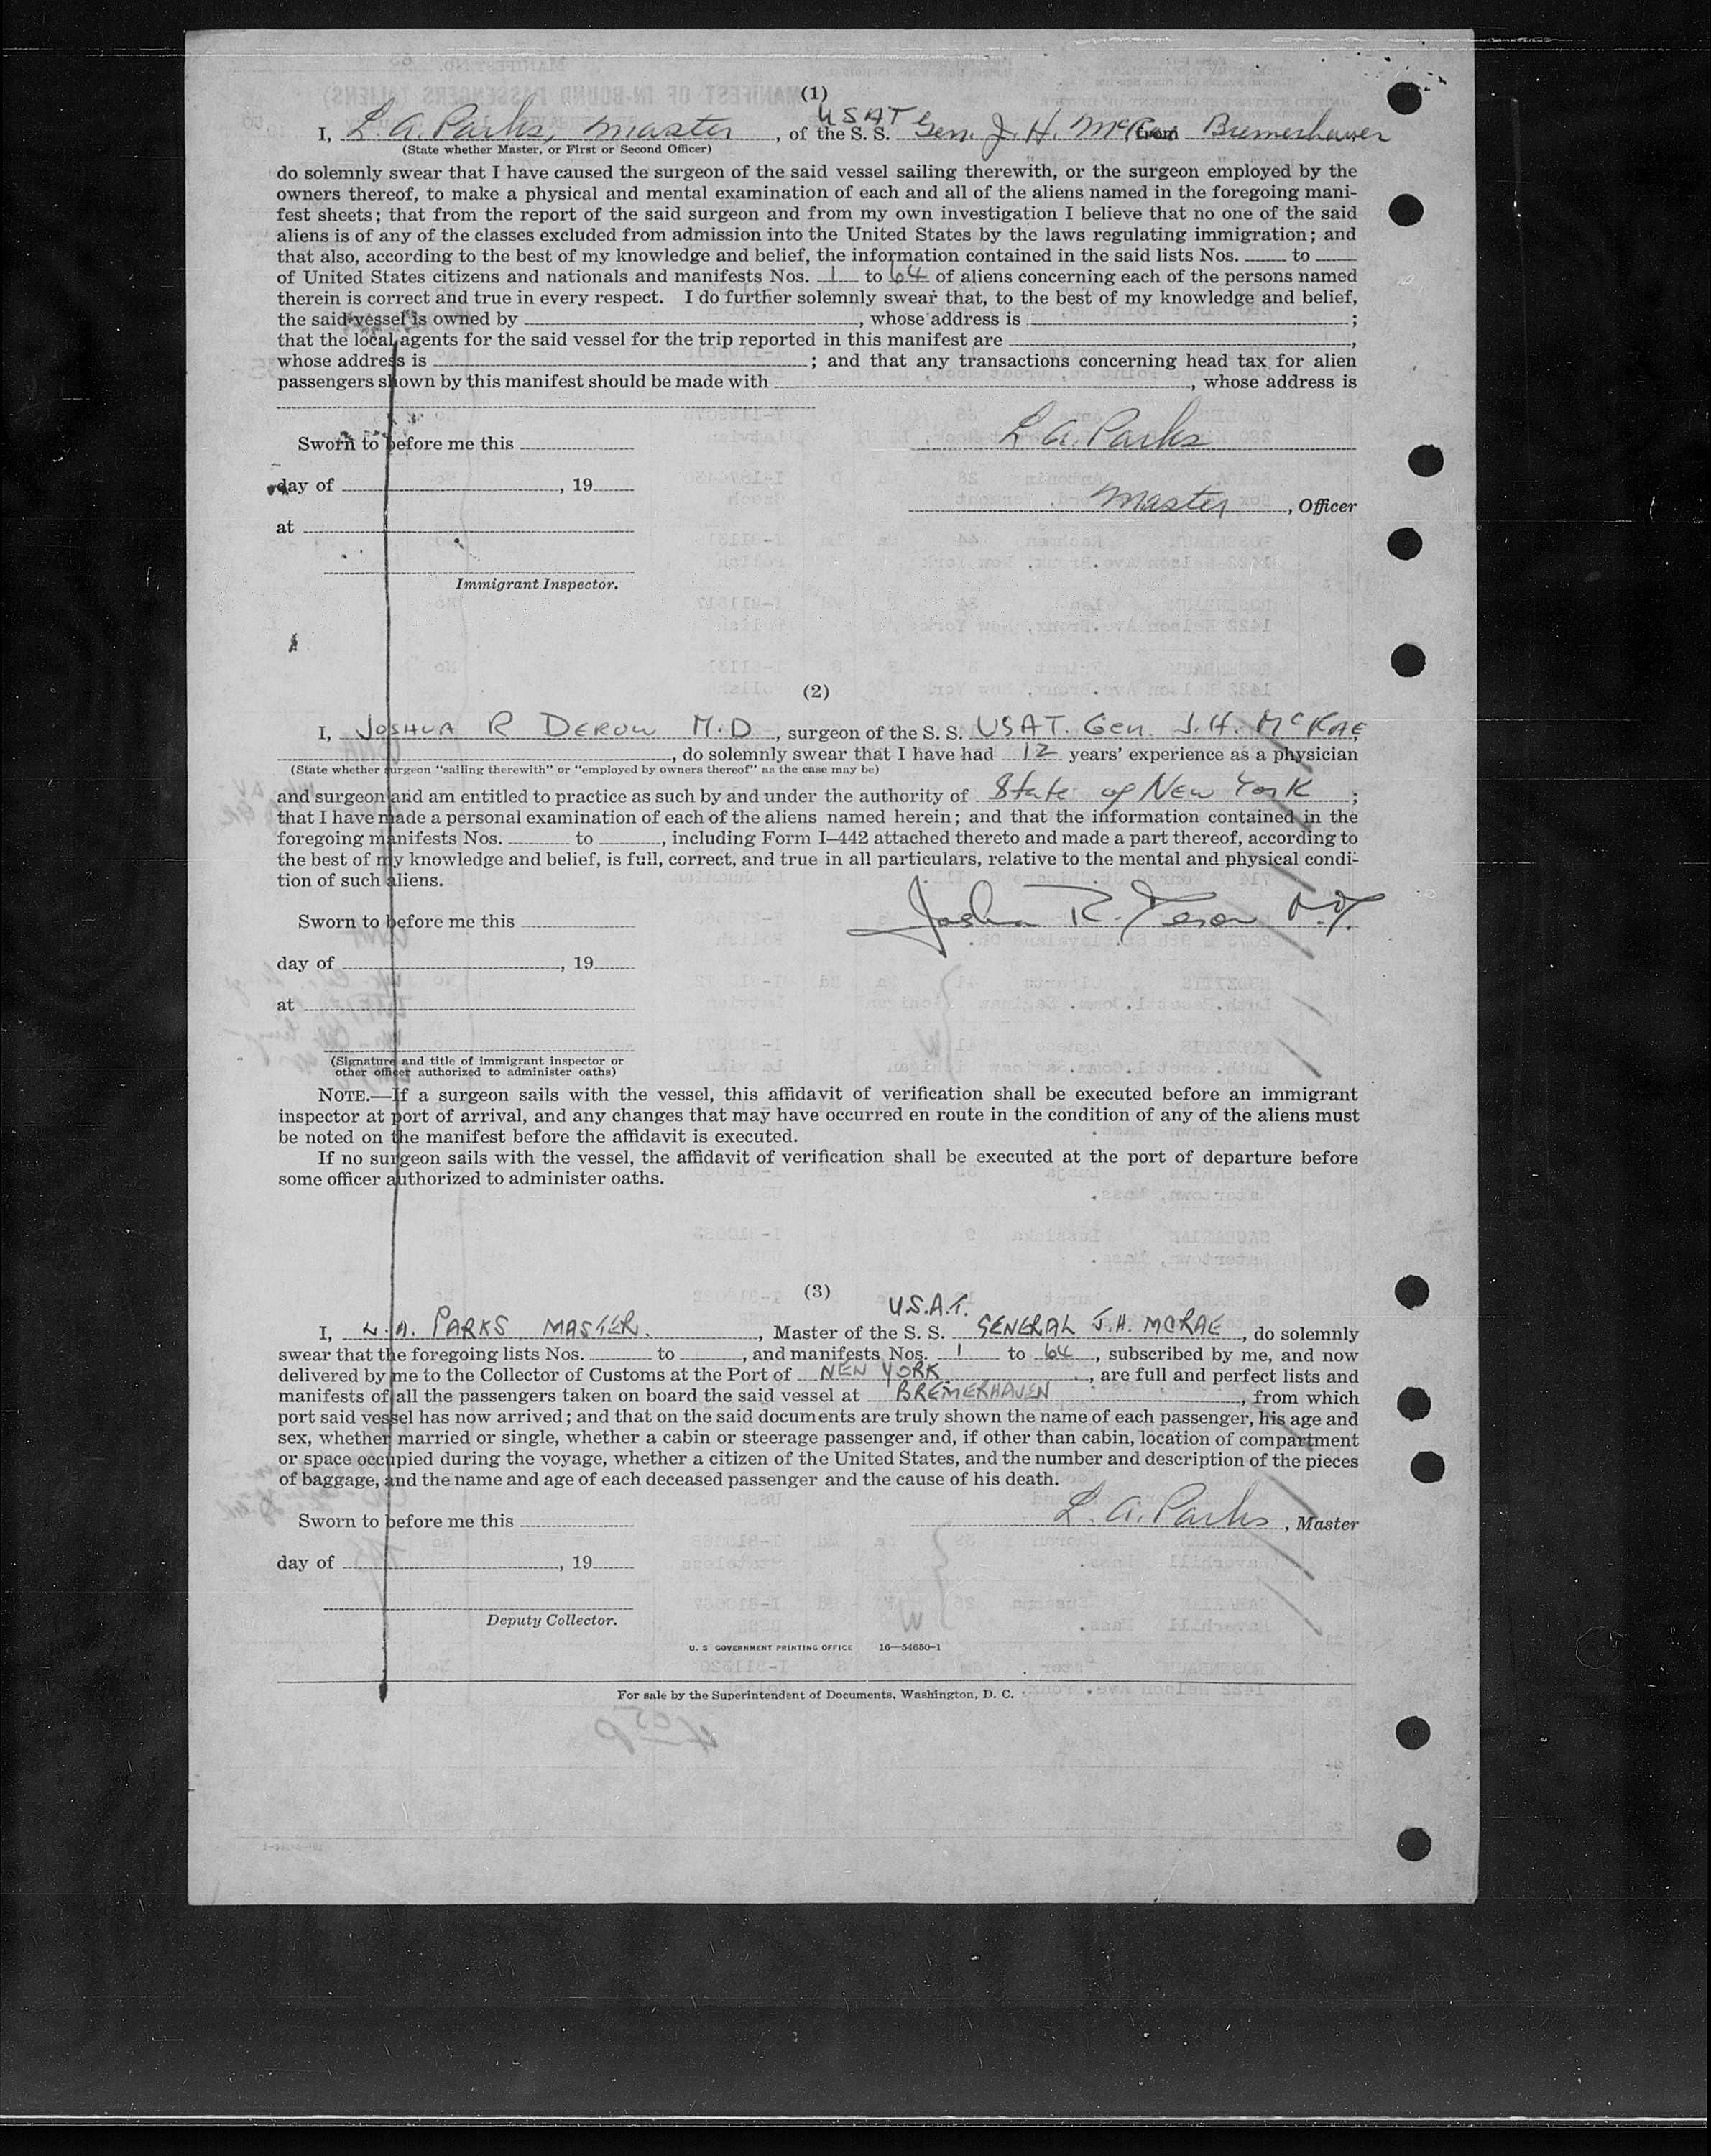 (1)
USAT
I, L. A. Parks, Master, of the S. S. Gen. J. H. McRae from Bremerhaven
(State whether Master, or First or Second Officer)
do solemnly swear that I have caused the surgeon of the said vessel sailing therewith, or the surgeon employed by the
owners thereof, to make a physical and mental examination of each and all of the aliens named in the foregoing mani-
fest sheets; that from the report of the said surgeon and from my own investigation I believe that no one of the said
aliens is of any of the classes excluded from admission into the United States by the laws regulating immigration; and
that also, according to the best of my knowledge and belief, the information contained in the said lists Nos. ____ to ____
of United States citizens and nationals and manifests Nos. 1 to 64 of aliens concerning each of the persons named
therein is correct and true in every respect. I do further solemnly swear that, to the best of my knowledge and belief,
the said vessel is owned by ____, whose address is ____;
that the local agents for the said vessel for the trip reported in this manifest are ____,
whose address is ____; and that any transactions concerning head tax for alien
passengers shown by this manifest should be made with ____, whose address is
L. A. Parks
Sworn to before me this ____
day of ____, 19____
Master, Officer
at ____
Immigrant Inspector.
(2)
I, JOSHUA R DEROW M.D, surgeon of the S. S. USAT. Gen. J. H. McRAE
____, do solemnly swear that I have had 12 years' experience as a physician
(State whether surgeon "sailing therewith" or "employed by owners thereof" as the case may be)
and surgeon and am entitled to practice as such by and under the authority of State of New York;
that I have made a personal examination of each of the aliens named herein; and that the information contained in the
foregoing manifests Nos. ____ to ____, including Form I–442 attached thereto and made a part thereof, according to
the best of my knowledge and belief, is full, correct, and true in all particulars, relative to the mental and physical condi-
tion of such aliens.
Joshua R. Derow M.D.
Sworn to before me this ____
day of ____, 19____
at ____
(Signature and title of immigrant inspector or
other officer authorized to administer oaths)
NOTE.—If a surgeon sails with the vessel, this affidavit of verification shall be executed before an immigrant
inspector at port of arrival, and any changes that may have occurred en route in the condition of any of the aliens must
be noted on the manifest before the affidavit is executed.
If no surgeon sails with the vessel, the affidavit of verification shall be executed at the port of departure before
some officer authorized to administer oaths.
(3)
U.S.A.T.
I, L. A. PARKS MASTER., Master of the S. S. GENERAL J. H. MCRAE, do solemnly
swear that the foregoing lists Nos. ____ to ____, and manifests Nos. 1 to 64, subscribed by me, and now
delivered by me to the Collector of Customs at the Port of NEW YORK, are full and perfect lists and
manifests of all the passengers taken on board the said vessel at BREMERHAVEN, from which
port said vessel has now arrived; and that on the said documents are truly shown the name of each passenger, his age and
sex, whether married or single, whether a cabin or steerage passenger and, if other than cabin, location of compartment
or space occupied during the voyage, whether a citizen of the United States, and the number and description of the pieces
of baggage, and the name and age of each deceased passenger and the cause of his death.
Sworn to before me this ____
L. A. Parks, Master
day of ____, 19____
Deputy Collector.
U. S GOVERNMENT PRINTING OFFICE 16—54650-1
For sale by the Superintendent of Documents, Washington, D. C.